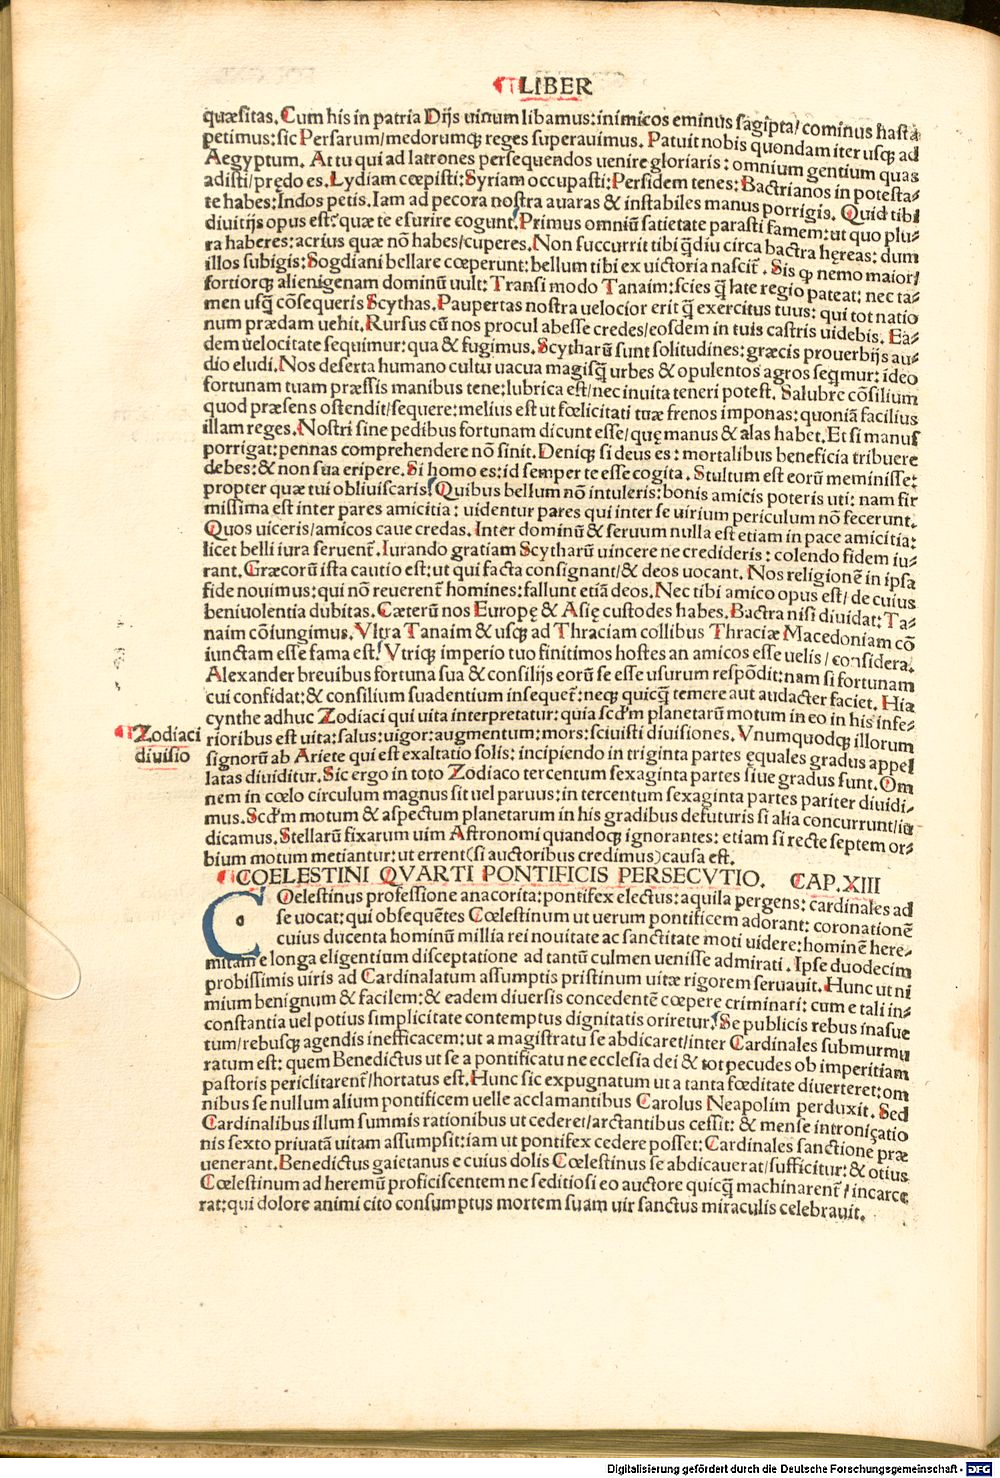 LIBER
quæsitas. Cum his in patria Dijs uinum libamus: inimicos eminus sagipta/ cominus hasta
petimus: sic Persarum/ medorumqꝫ reges superauimus. Patuit nobis quondam iter usqꝫ ad
Aegyptum. At tu qui ad latrones persequendos uenire gloriaris: omnium gentium quas
adisti/ prędo es. Lydiam cœpisti: Syriam occupasti: Persidem tenes: Bactrianos in potesta⸗
te habes: Indos petis. Iam ad pecora nostra auaras & instabiles manus porrigis. Quid tibi
diuitijs opus est? quæ te esurire cogunt. Primus omniū satietate parasti famem: ut quo plu⸗
ra haberes: acrius quæ nō habes/ cuperes. Non succurrit tibi q̄diu circa bactra hęreas: dum
illos subigis: Sogdiani bellare cœperunt: bellum tibi ex uictoria nascit̄. Sis qꝫ nemo maior/
fortiorqꝫ alienigenam dominū uult: Transi modo Tanaim: scies q̄ late regio pateat: nec ta⸗
men usq̄ cōsequeris Scythas. Paupertas nostra uelocior erit q̄ exercitus tuus: qui tot natio
num prædam uehit. Rursus cū nos procul abesse credes/ eosdem in tuis castris uidebis. Ea⸗
dem uelocitate sequimur: qua & fugimus. Scytharū sunt solitudines: græcis prouerbijs au⸗
dio eludi. Nos deserta humano cultu uacua magisq̄ urbes & opulentos agros seqmur: ideo
fortunam tuam præssis manibus tene: lubrica est/ nec inuita teneri potest. Salubre cōsilium
quod præsens ostendit/ sequere: melius est ut fœlicitati tuæ frenos imponas: quoniā facilius
illam reges. Nostri sine pedibus fortunam dicunt esse/ quę manus & alas habet. Et si manus
porrigat: pennas comprehendere nō sinit. Deniqꝫ si deus es: mortalibus beneficia tribuere
debes: & non sua eripere. Si homo es: id semper te esse cogita. Stultum est eorū meminisse:
propter quæ tui obliuiscaris. Quibus bellum nō intuleris: bonis amicis poteris uti: nam fir
missima est inter pares amicitia: uidentur pares qui inter se uirium periculum nō fecerunt.
Quos uiceris/ amicos caue credas. Inter dominū & seruum nulla est etiam in pace amicitia:
licet belli iura seruent̄. Iurando gratiam Scytharū uincere ne credideris: colendo fidem iu⸗
rant. Græcorū ista cautio est: ut qui facta consignant/ & deos uocant. Nos religionē in ipsa
fide nouimus: qui nō reuerent̄ homines: fallunt etiā deos. Nec tibi amico opus est/ de cuius
beniuolentia dubitas. Cæterū nos Europę & Asię custodes habes. Bactra nisi diuidat: Ta⸗
naim cōiungimus. Vltra Tanaim & usqꝫ ad Thraciam collibus Thraciæ Macedoniam cō
iunctam esse fama est. Vtriqꝫ imperio tuo finitimos hostes an amicos esse uelis/ considera.
Alexander breuibus fortuna sua & consilijs eorū se esse usurum respōdit: nam si fortunam
cui confidat: & consilium suadentium insequet̄: neqꝫ quicq̄ temere aut audacter faciet. Hia
cynthe adhuc Zodiaci qui uita interpretatur: quia scd'm planetarū motum in eo in his infe⸗
Zodiaci
diuisio
rioribus est uita: salus: uigor: augmentum: mors: sciuisti diuisiones. Vnumquodqꝫ illorum
signorū ab Ariete qui est exaltatio solis: incipiendo in triginta partes ęquales gradus appel
latas diuiditur. Sic ergo in toto Zodiaco tercentum sexaginta partes siue gradus sunt. Om
nem in cœlo circulum magnus sit uel paruus: in tercentum sexaginta partes pariter diuidi⸗
mus. Scd'm motum & aspectum planetarum in his gradibus de futuris si alia concurrunt/ iu⸗
dicamus. Stellarū fixarum uim Astronomi quandoqꝫ ignorantes: etiam si recte septem or⸗
bium motum metiantur: ut errent (si auctoribus credimus) causa est.
COELESTINI QVARTI PONTIFICIS PERSECVTIO. CAP. XIII
COelestinus professione anacorita: pontifex electus: aquila pergens: cardinales ad
se uocat: qui obsequētes Cœlestinum ut uerum pontificem adorant: coronationē
cuius ducenta hominū millia rei nouitate ac sanctitate moti uidere: hominē here⸗
mitam e longa eligentium disceptatione ad tantū culmen uenisse admirati. Ipse duodecim
probissimis uiris ad Cardinalatum assumptis pristinum uitæ rigorem seruauit. Hunc ut ni
mium benignum & facilem: & eadem diuersis concedentē cœpere criminari: cum e tali in⸗
constantia uel potius simplicitate contemptus dignitatis oriretur. Se publicis rebus inasue
tum/ rebusqꝫ agendis inefficacem: ut a magistratu se abdicaret/ inter Cardinales submurmu
ratum est: quem Benedictus ut se a pontificatu ne ecclesia dei & tot pecudes ob imperitiam
pastoris periclitarent̄/ hortatus est. Hunc sic expugnatum ut a tanta fœditate diuerteret: om
nibus se nullum alium pontificem uelle acclamantibus Carolus Neapolim perduxit. Sed
Cardinalibus illum summis rationibus ut cederet/ arctantibus cessit: & mense introniçatio
nis sexto priuatā uitam assumpsit: iam ut pontifex cedere posset: Cardinales sanctione præ
uenerant. Benedictus gaietanus e cuius dolis Cœlestinus se abdicauerat/ sufficitur: & otius
Cœlestinum ad heremū proficiscentem ne seditiosi eo auctore quicq̄ machinarent̄/ incarce
rat: qui dolore animi cito consumptus mortem suam uir sanctus miraculis celebrauit.
Digitalisierung gefördert durch die Deutsche Forschungsgemeinschaft - DFG